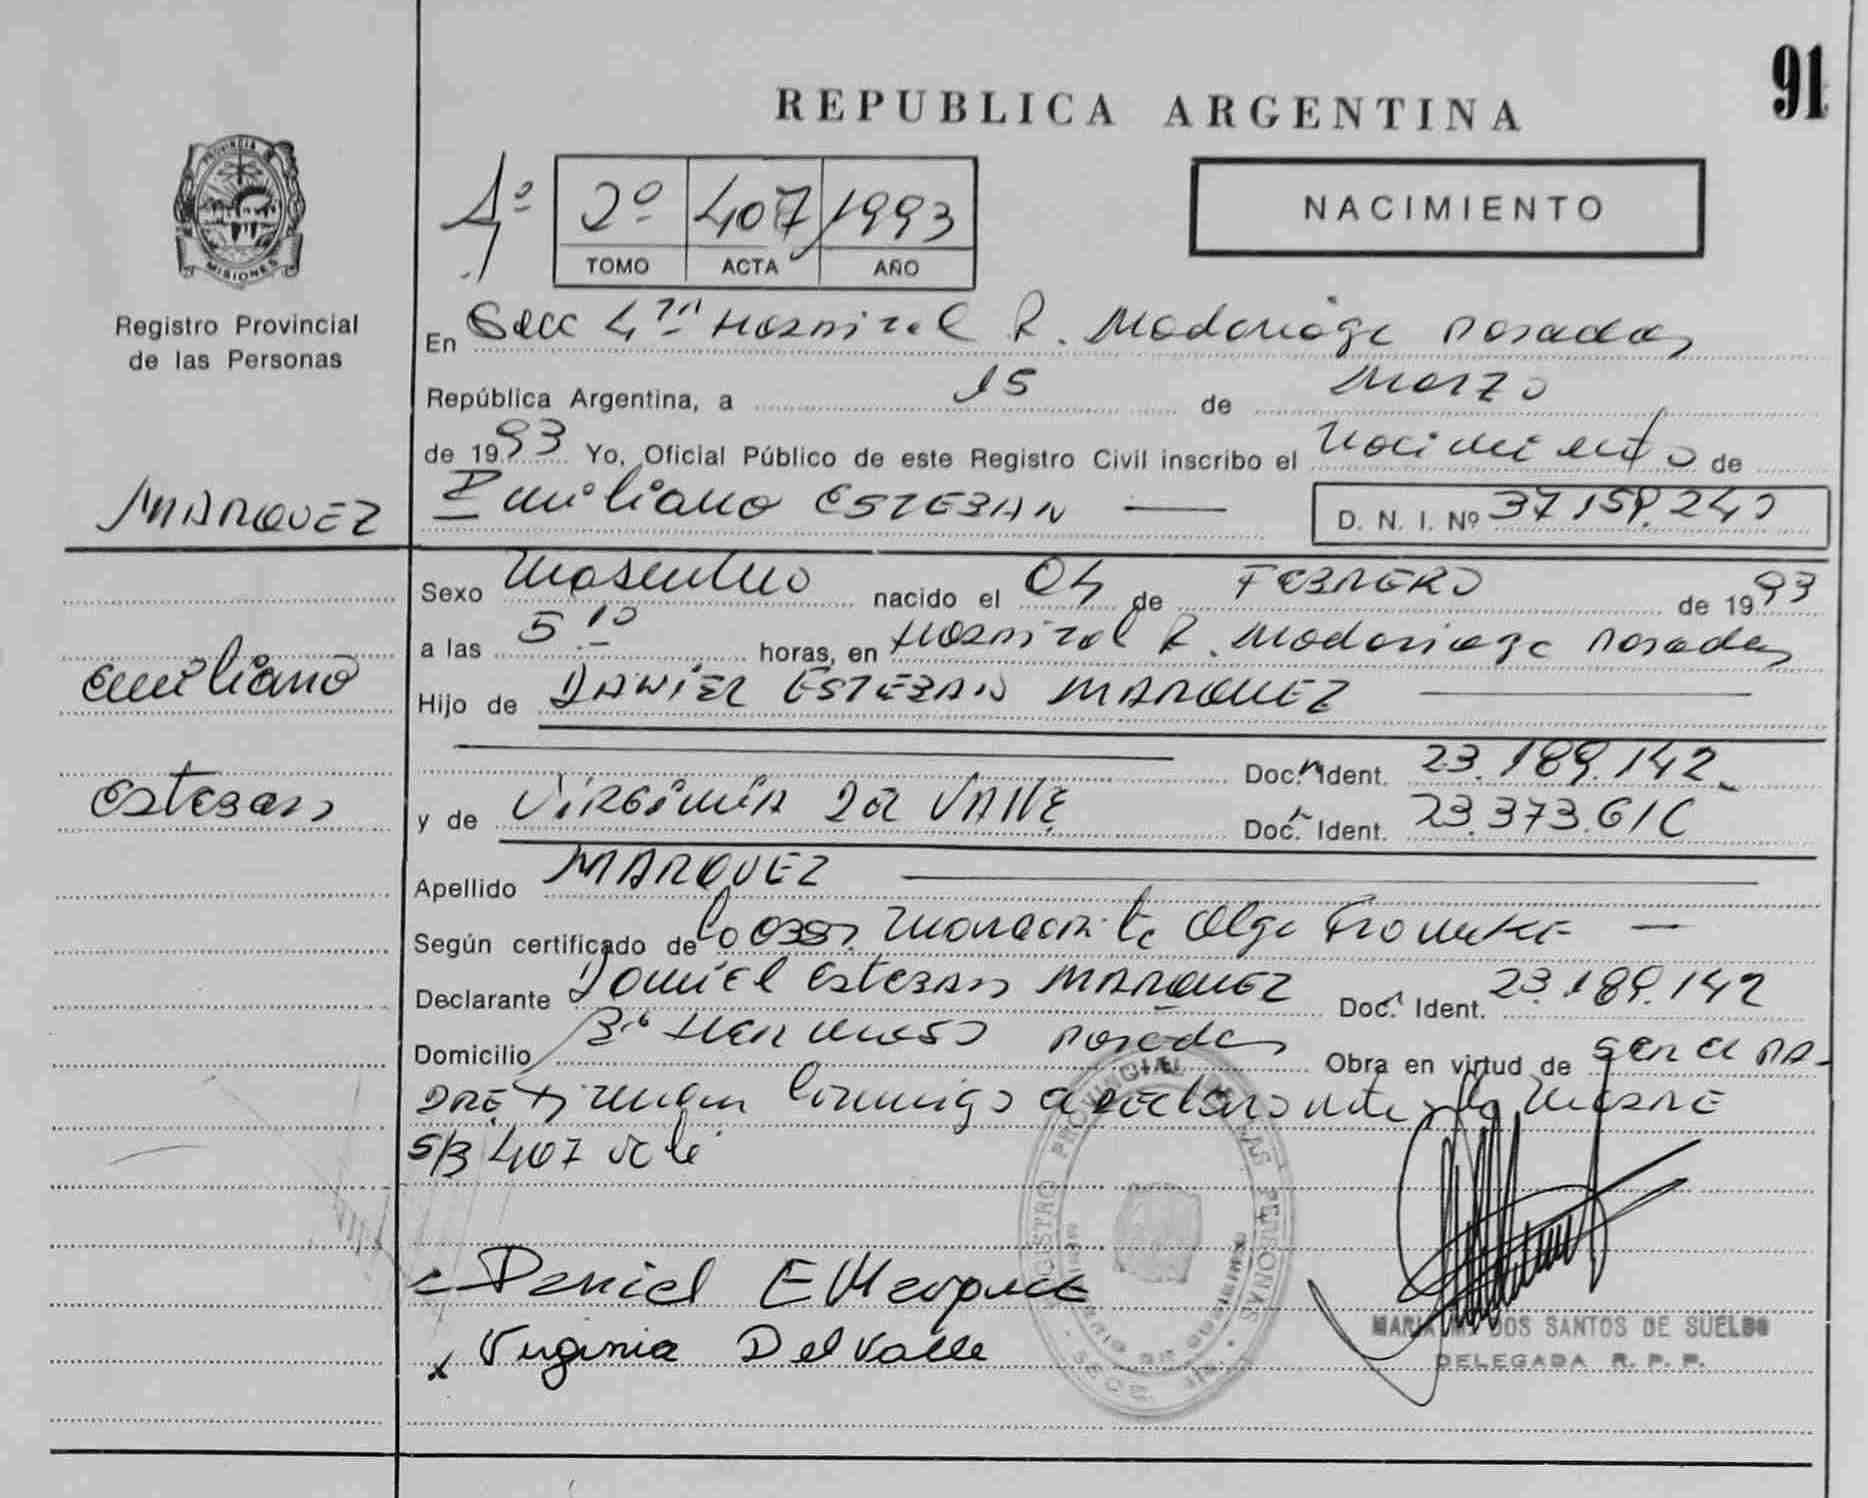 91
REPUBLICA ARGENTINA
PROVINCIA DE
MISIONES
Registro Provincial
de las Personas
2º 407 1993
TOMO ACTA AÑO
NACIMIENTO
En Secc 4ta Hospital R. Madariaga Posadas
República Argentina, a 15 de Marzo
de 1993 Yo, Oficial Público de este Registro Civil inscribo el Nacimiento de
MARQUEZ
Emiliano ESTEBAN
D. N. I. Nº
Sexo Masculino nacido el 04 de FEBRERO de 1993
a las 5 10 horas, en Hospital R. Madariaga Posadas
Emiliano
Hijo de DANIEL ESTEBAN MARQUEZ
Doc. Ident. 23.189.142
Esteban
y de VIRGINIA DEL VALLE Doc. Ident. 23.373.616
Apellido MARQUEZ
Según certificado de la Obst. Margarita Olga
Declarante Daniel Esteban MARQUEZ Doc. Ident. 23.189.142
Domicilio Bº Hermoso Posadas Obra en virtud de ser el PA-
DRE Firman conmigo el declarante y la MADRE
S/B 407 vale
Daniel E Marquez
x Virginia Del Valle
REGISTRO PROVINCIAL DE LAS PERSONAS
MARIA M. DOS SANTOS DE SUELDO
DELEGADA R. P. P.